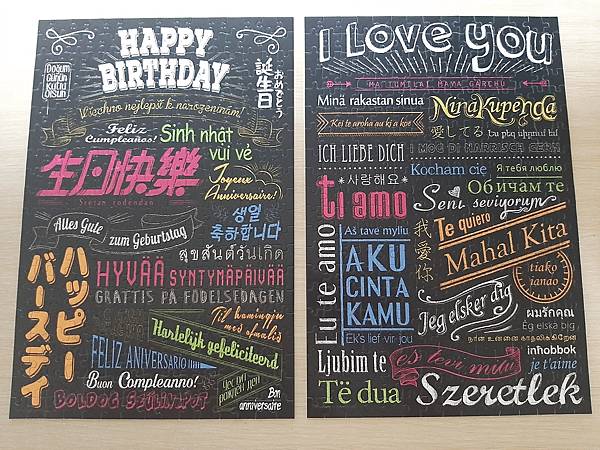 HAPPY
BIRTHDAY
Doğum
Günün
Kutlu
Olsun
誕生日
おめでとう
Všechno nejlepší k narozeninám!
Feliz
Cumpleaños!
Sinh nhật
vui vẻ
生日快樂
Sretan rođendan
Joyeux
Anniversaire!
Alles Gute
zum Geburtstag
생일
축하합니다
สุขสันต์วันเกิด
ハッピー
バースデイ
HYVÄÄ SYNTYMÄPÄIVÄÄ
GRATTIS PÅ FÖDELSEDAGEN
Til hamingju
með afmælið
Hartelijk gefeliciteerd
FELIZ ANIVERSÁRIO
Buon Compleanno!
BOLDOG SZÜLINAPOT
Bon
anniversaire
I LOVE YOU
MA TUMILAI MAYA GARCHU
Minä rakastan sinua
Ninakupenda
Kei te aroha au ki a koe
愛してる
ICH LIEBE DICH
사랑해요
Kocham cię
Я тебя люблю
ti amo
Обичам те
Seni seviyorum
Eu te amo
Aš tave myliu
我愛你
Te quiero
Mahal Kita
AKU
CINTA
KAMU
tiako
ianao
Jeg elsker dig
ผมรักคุณ
Ég elska þig
Ek's lief vir jou
நான் உன்னை காதலிக்கிறேன்
Ljubim te
es tevi mīlu
inhobbok
je t'aime
Të dua
Szeretlek